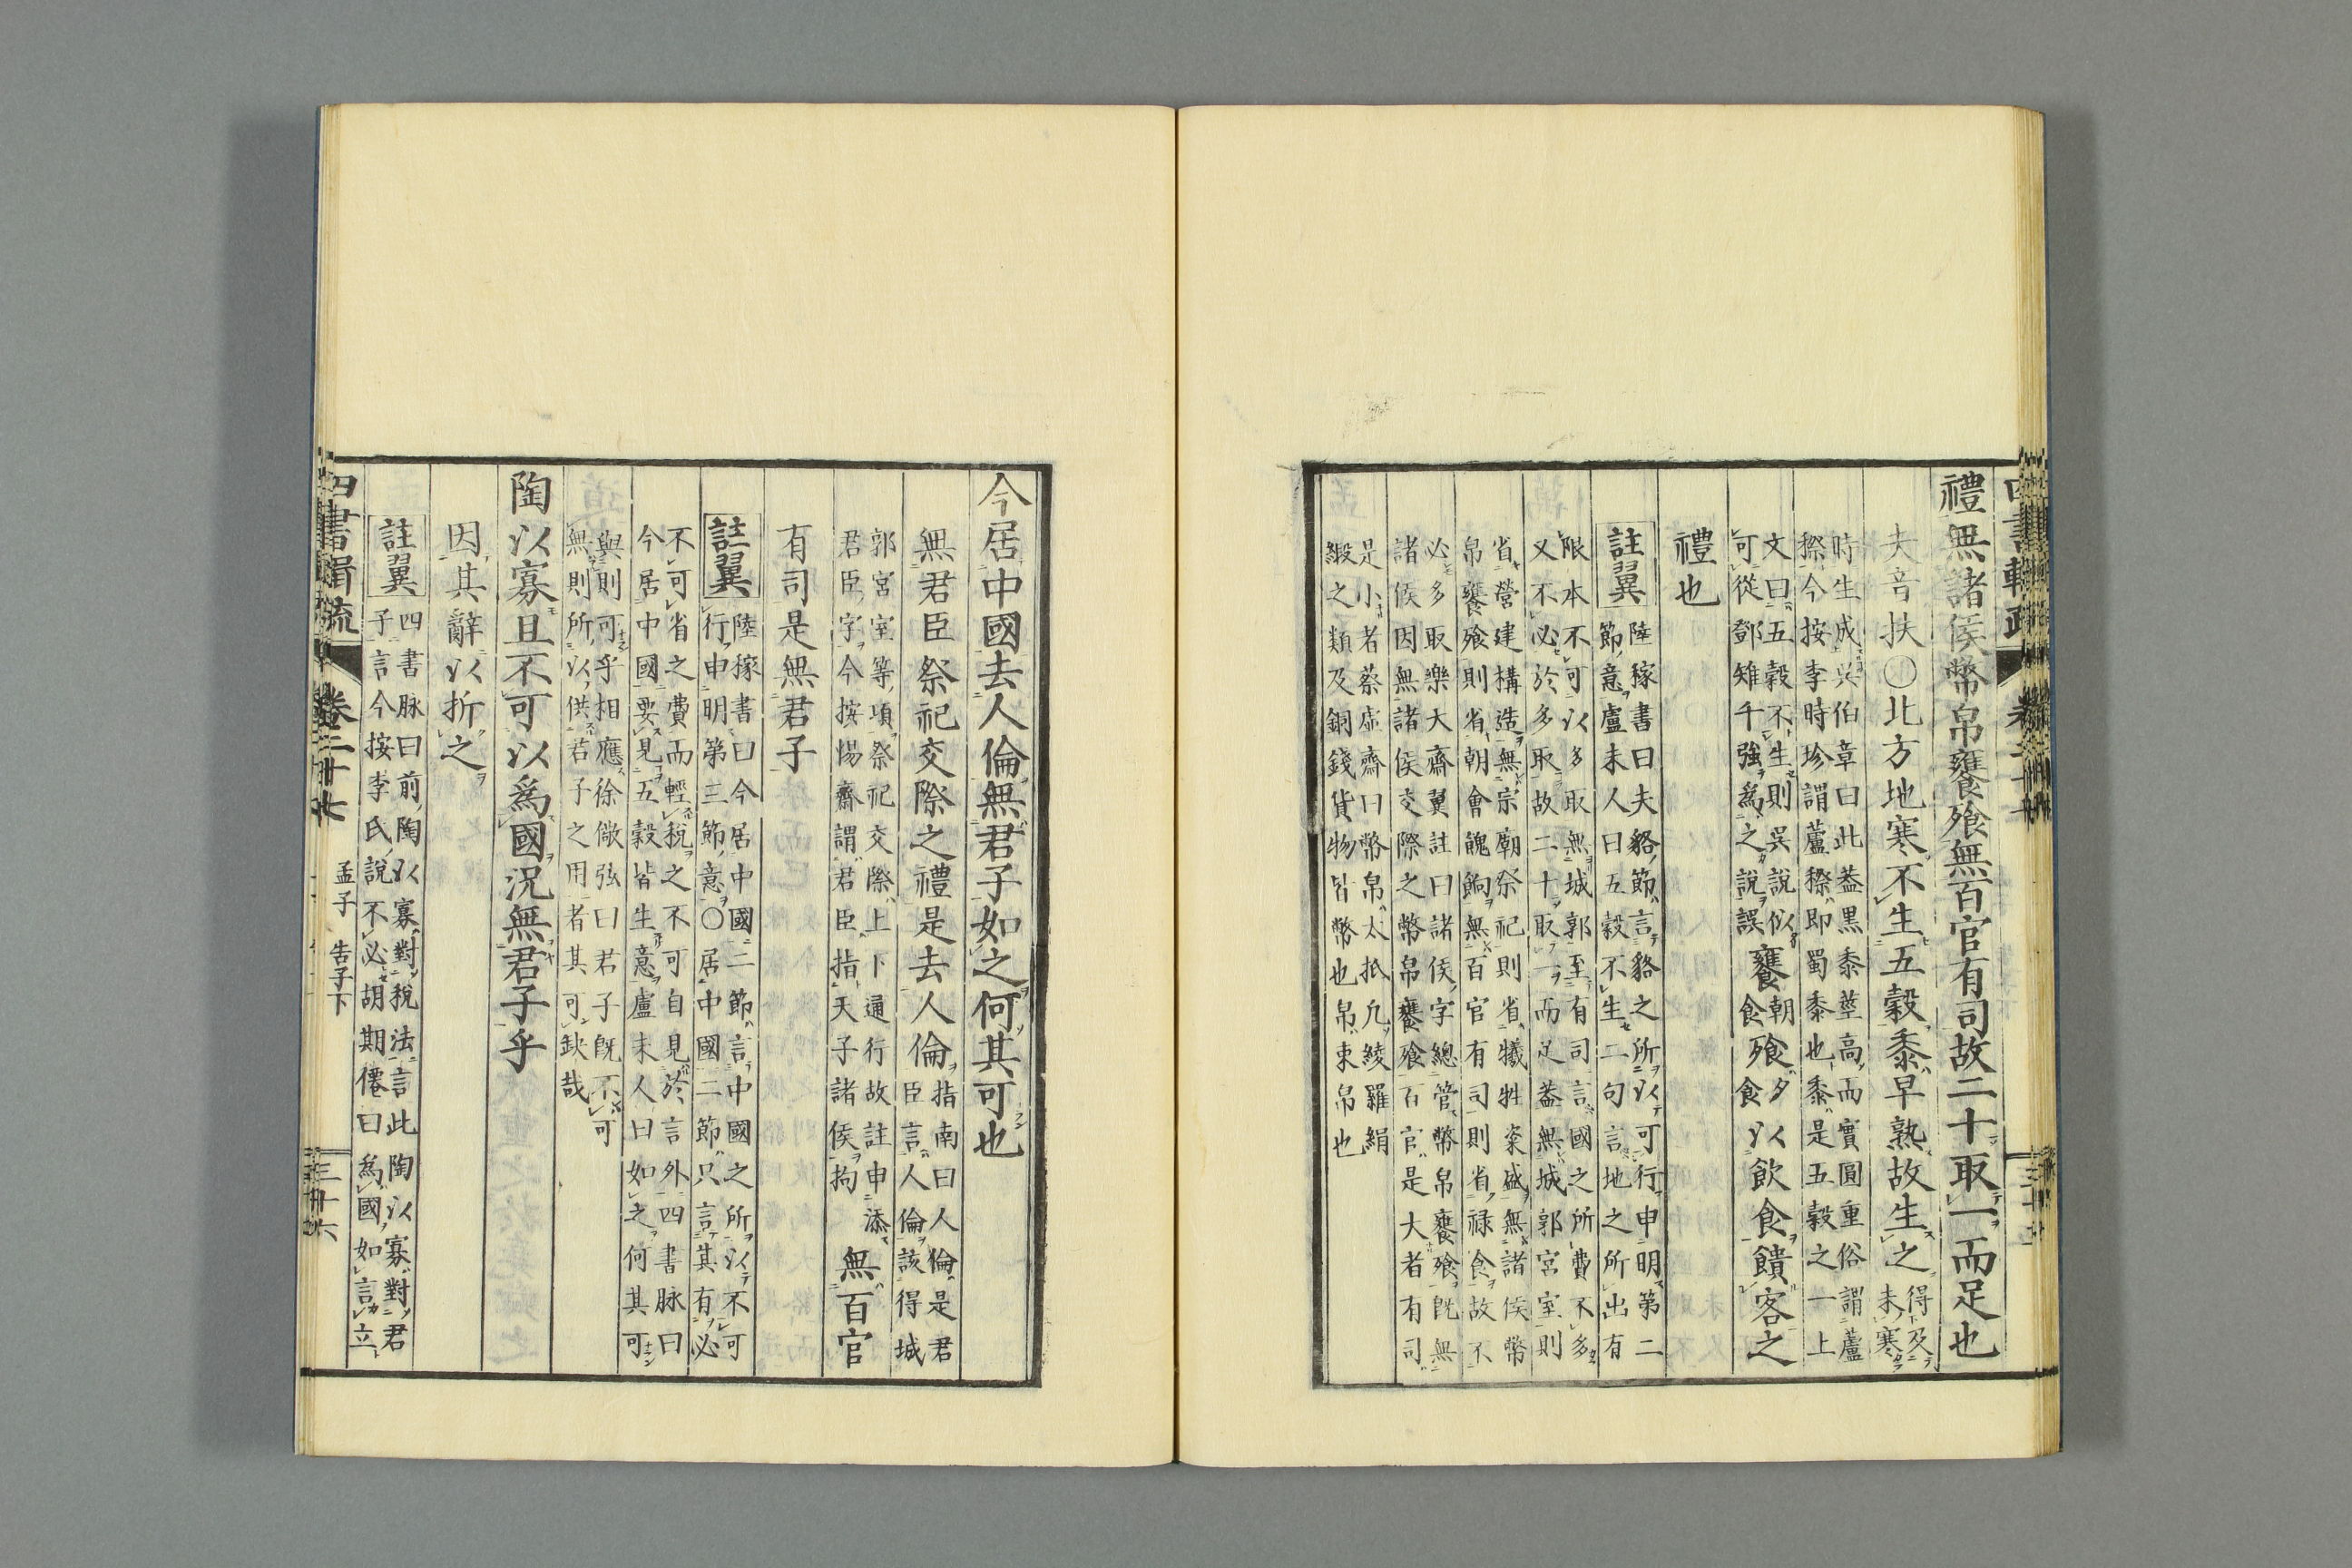 禮無諸侯幣帛饔飱無百官有司故二十取一而足也
夫音扶〇北方地寒不生五穀黍早熟故生之得及
未寒
時生成吳伯章曰此葢黑黍莖高而實圓重俗謂蘆
穄今按李時珍謂蘆穄即蜀黍也黍是五穀之一上
文曰五穀不生則吳說似
可從鄧雉千強爲之說誤
饔朝食飱夕食以飲食饋客之
禮也
註翼
陸稼書曰夫貉節言貉之所以可行申明第二
節意盧未人曰五穀不生二句言地之所出有
限本不可以多取無城郭至有司言國之所費不多
又不必於多取故二十取一而足葢無城郭宮室則
省營建構造無宗廟祭祀則省犧牲粢盛無諸侯幣
帛饔飱則省朝會餽餉無百官有司則省祿食故不
必多取樂大齋翼註曰諸侯字總管幣帛饔飱旣無
諸侯因無諸侯交際之幣帛饔飱百官是大者有司
是小者蔡虛齋曰幣帛太抵凡綾羅絹
緞之類及銅錢貨物皆幣也帛束帛也
今居中國去人倫無君子如之何其可也
無君臣祭祀交際之禮是去人倫指南曰人倫是君
臣言人倫該得城
郭宮室等項祭祀交際上下通行故註申添
君臣字今按惕齋謂君臣指天子諸侯拘
無百官
有司是無君子
註翼
陸稼書曰今居中國二節言中國之所以不可
行申明第三節意〇居中國二節只言其有必
不可省之費而輕稅之不可自見於言外四書脉曰
今居中國要見五穀皆生意盧未人曰如之何其可
與則可乎相應徐儆弦曰君子旣不可
無則所以供君子之用者其可缺哉
陶以寡且不可以爲國況無君子乎
因其辭以折之
註翼
四書脉曰前陶以寡對稅法言此陶以寡對君
子言今按李氏說不必胡期僊曰爲國如言立
四書輯疏
卷二十七
孟子
告子下
三十六